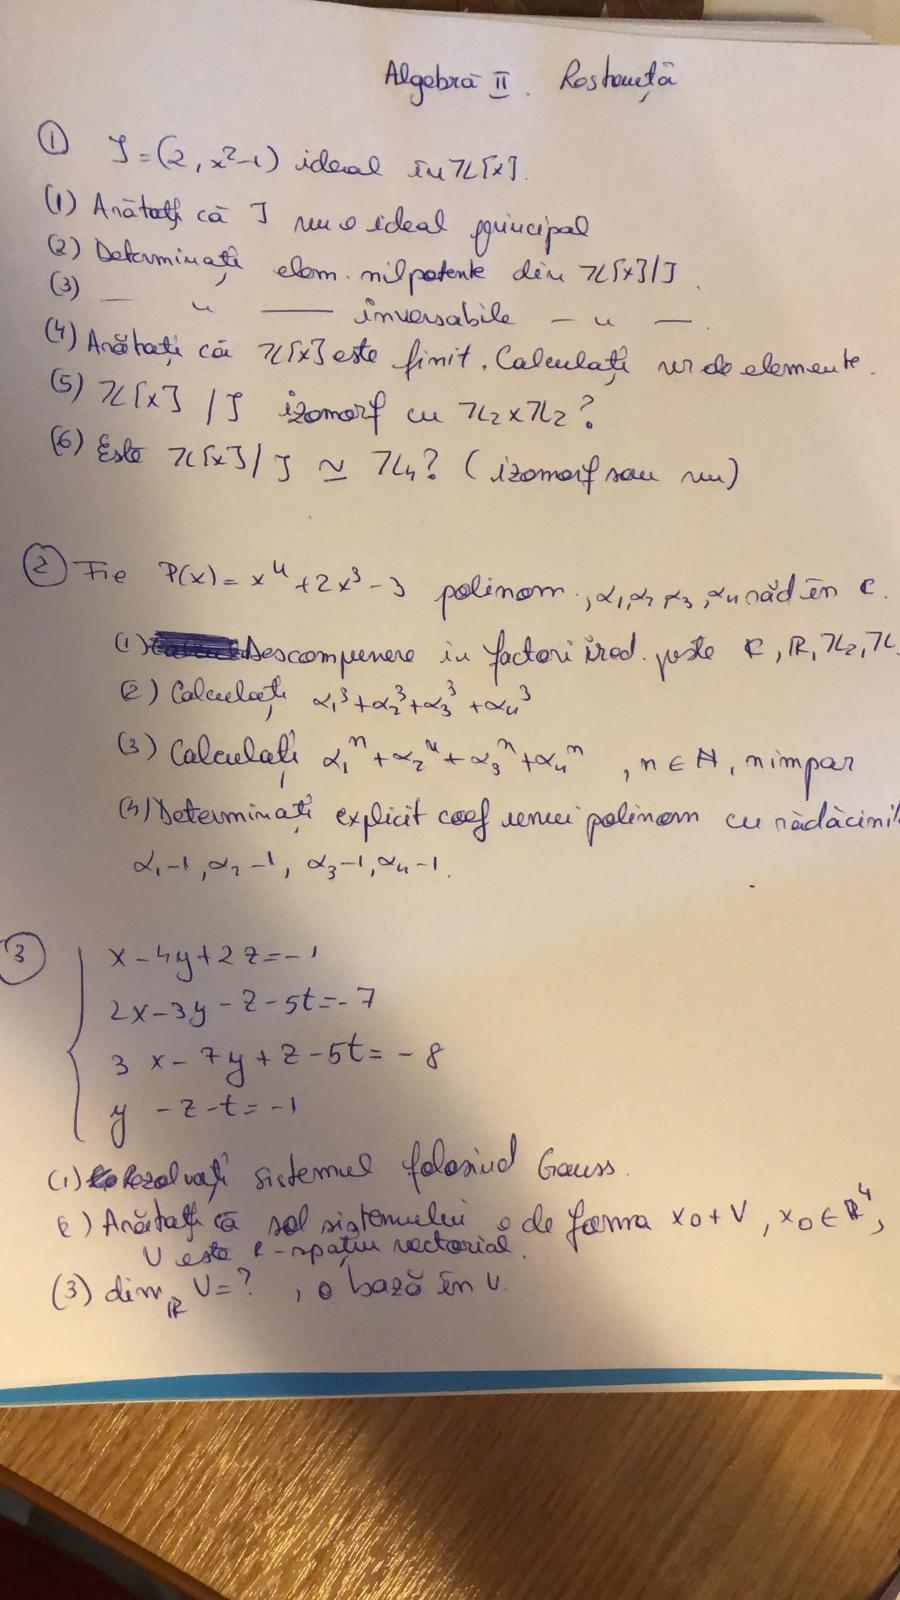 Algebră II. Restanță
① J=(2, x²-1) ideal în ℤ[x].
(1) Arătați că J nu e ideal principal
(2) Determinați elem. nilpotente din ℤ[x]/J.
(3) — " — inversabile — " —.
(4) Arătați că ℤ[x] este finit. Calculați nr de elemente.
(5) ℤ[x] /J izomorf cu ℤ₂×ℤ₂?
(6) Este ℤ[x]/J ≃ ℤ₄? (izomorf sau nu)
② Fie P(x)= x⁴+2x³-3 polinom., α₁,α₂,α₃,α₄ răd în ℂ.
(1) Descompunere in factori ired. peste ℂ, ℝ, ℤ₂, ℤ.
(2) Calculați α₁³+α₂³+α₃³+α₄³
(3) Calculați α₁ⁿ+α₂ⁿ+α₃ⁿ+α₄ⁿ, n∈ℕ, n impar
(4) Determinați explicit coef unui polinom cu rădăcinil
α₁-1, α₂-1, α₃-1, α₄-1.
3 { x-4y+2z=-1
2x-3y-z-5t=-7
3x-7y+z-5t=-8
y-z-t=-1
(1) Rezolvați sistemul folosind Gauss.
2) Arătați că sol sistemului e de forma x₀+V, x₀∈ℝ⁴,
V este ℝ-spațiu vectorial.
(3) dim_ℝ V=?, o bază în V.